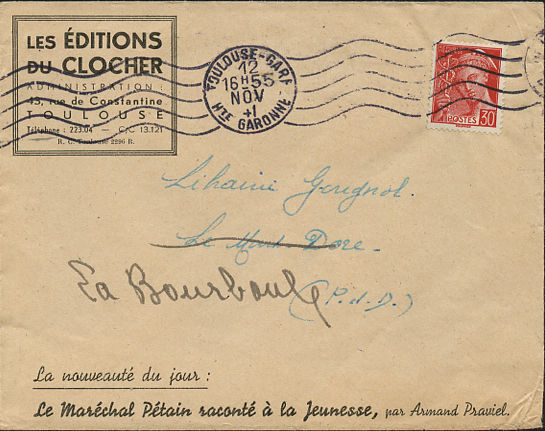 LES ÉDITIONS
DU CLOCHER
ADMINISTRATION :
43, rue de Constantine
TOULOUSE
Téléphone : 223.04 — C/C 13.121
R. C. Toulouse 2296 B.
TOULOUSE-GARE
12
16H55
NOV
41
HTE GARONNE
POSTES 30
Librairie Gerignol.
Le Mont Dore.
La Bourboule
(P.-d.-D.)
La nouveauté du jour :
Le Maréchal Pétain raconté à la Jeunesse, par Armand Praviel.